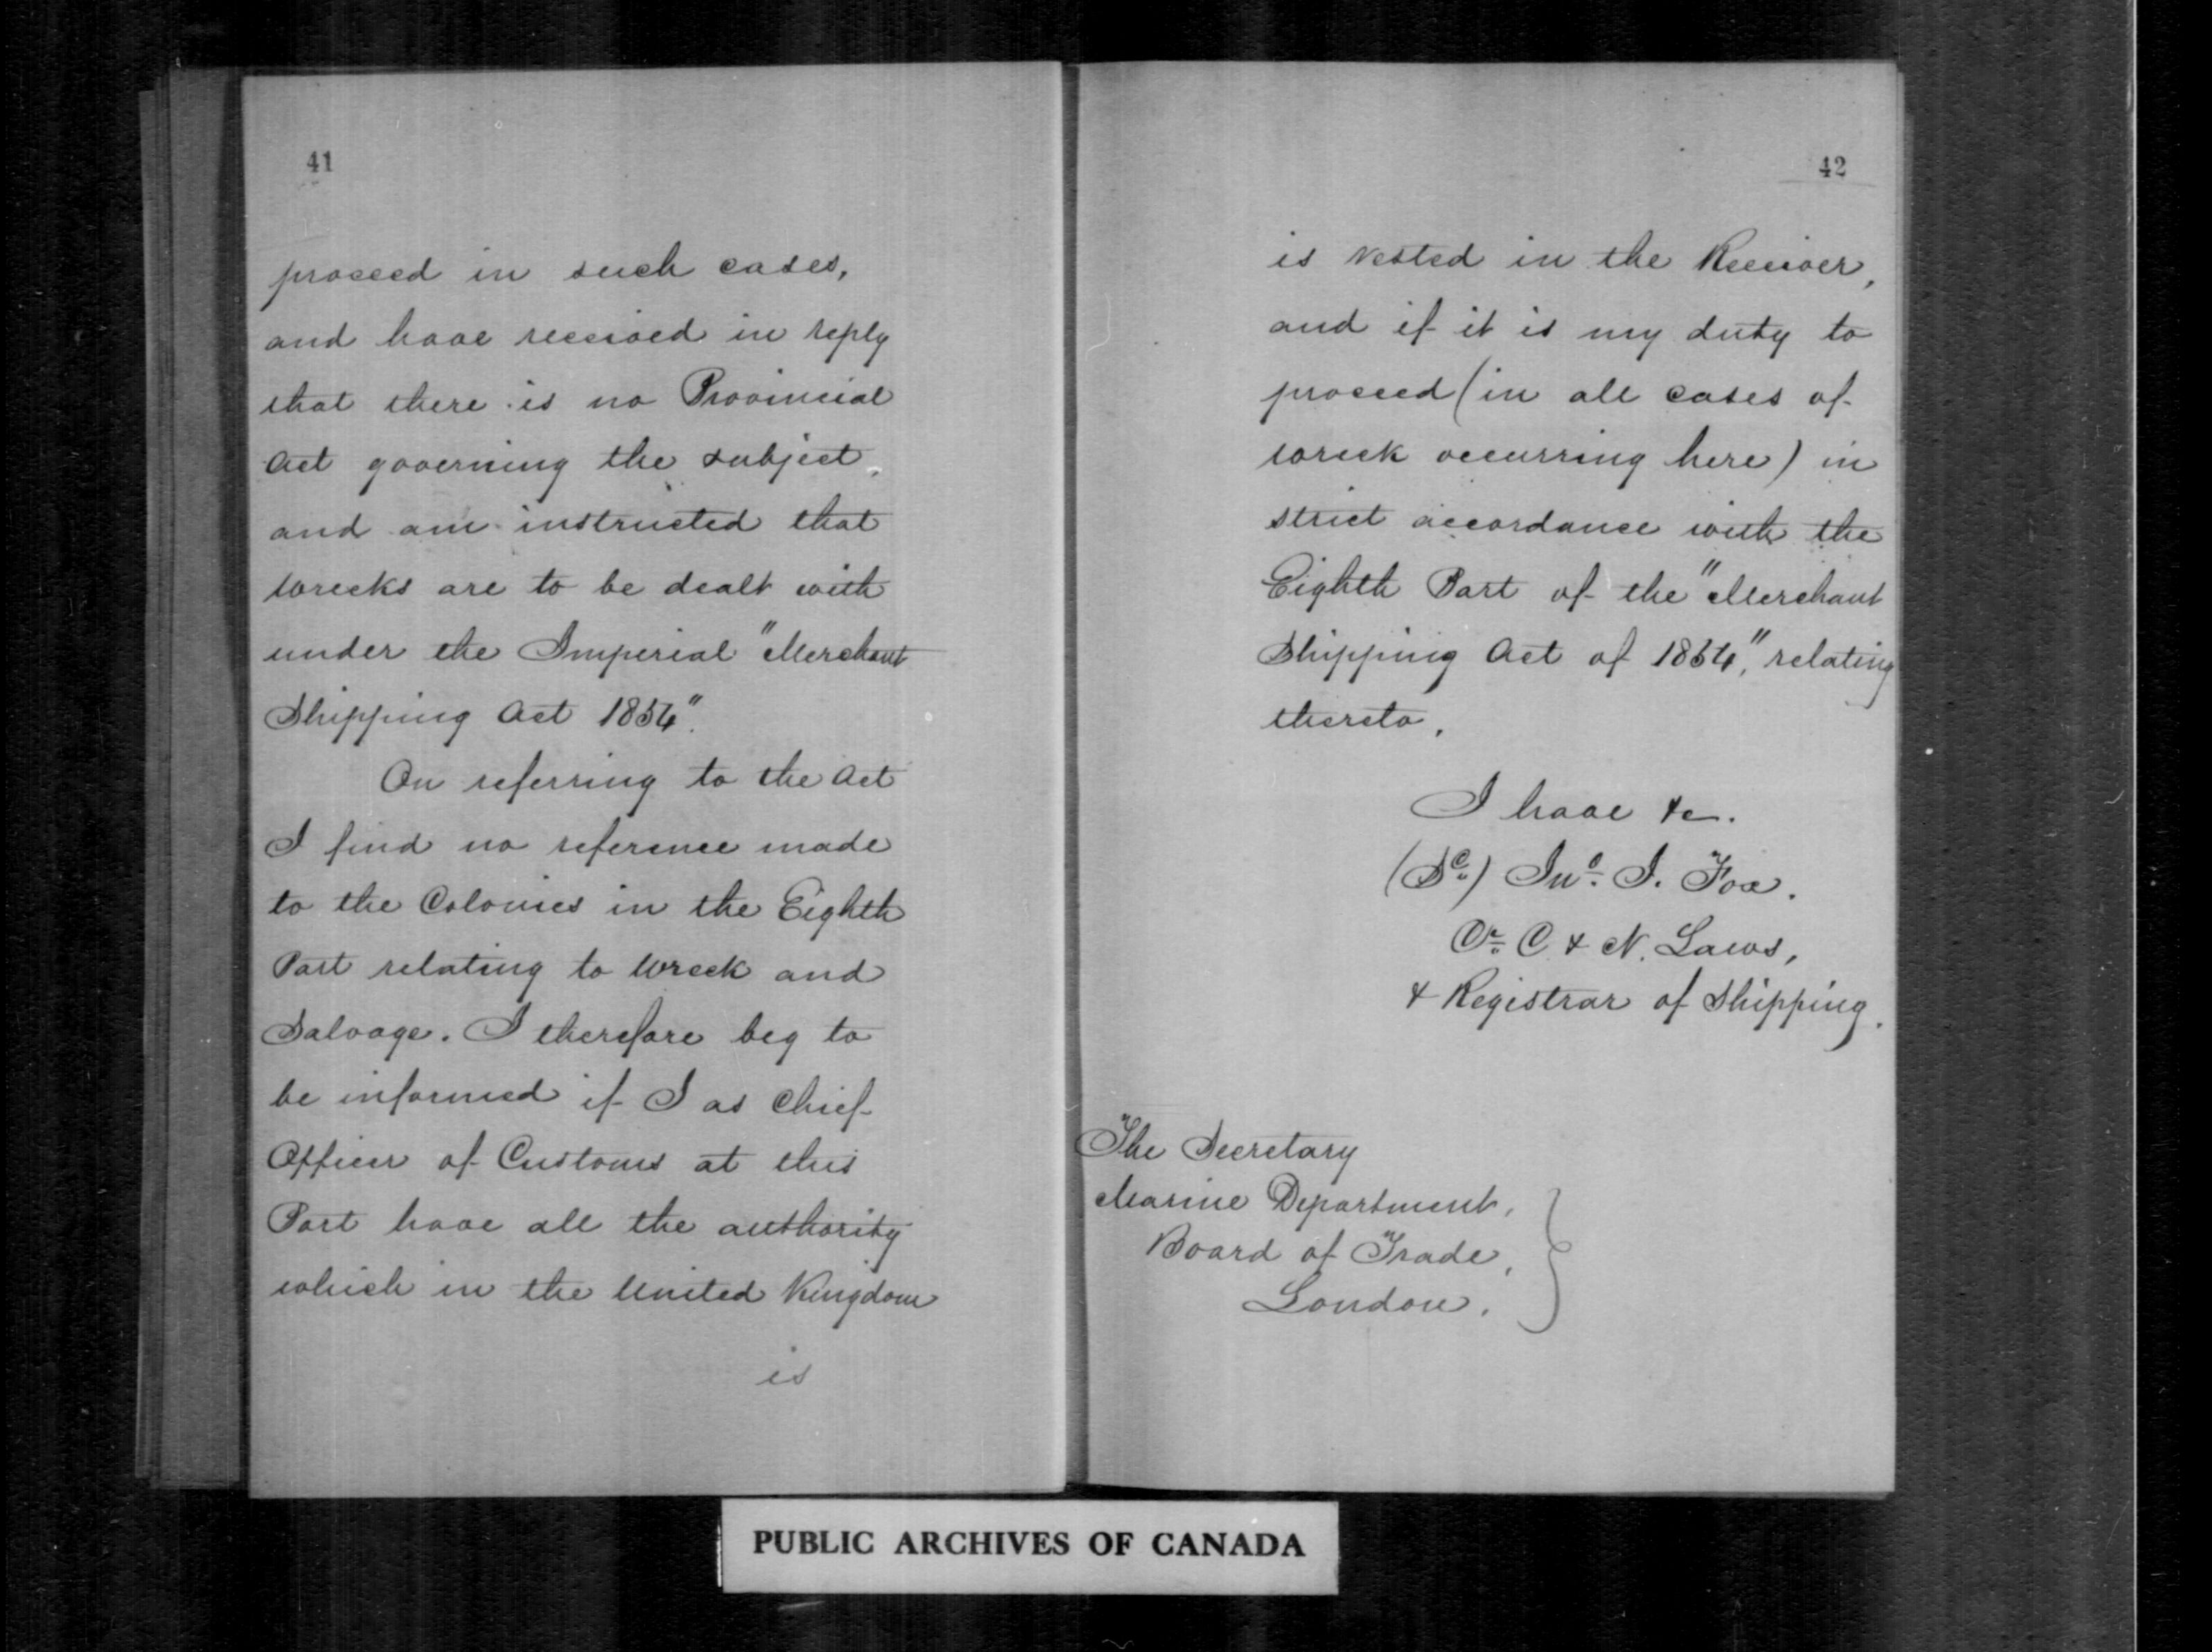 41
proceed in such cases,
and have received in reply
that there is no Provincial
Act governing the subject,
and am instructed that
wrecks are to be dealt with
under the Imperial "Merchant
Shipping Act 1854".
On referring to the Act
I find no reference made
to the Colonies in the Eighth
Part relating to Wreck and
Salvage. I therefore beg to
be informed if I as Chief
Officer of Customs at this
Port have all the authority
which in the United Kingdom
is
42
is vested in the Receiver,
and if it is my duty to
proceed (in all cases of
wreck occurring here) in
strict accordance with the
Eighth Part of the "Merchant
Shipping Act of 1854," relating
thereto.
I have &c.
Jno. J. Fox.
C & N. Laws,
& Registrar of Shipping.
The Secretary
Marine Department,
Board of Trade,
London.
PUBLIC ARCHIVES OF CANADA